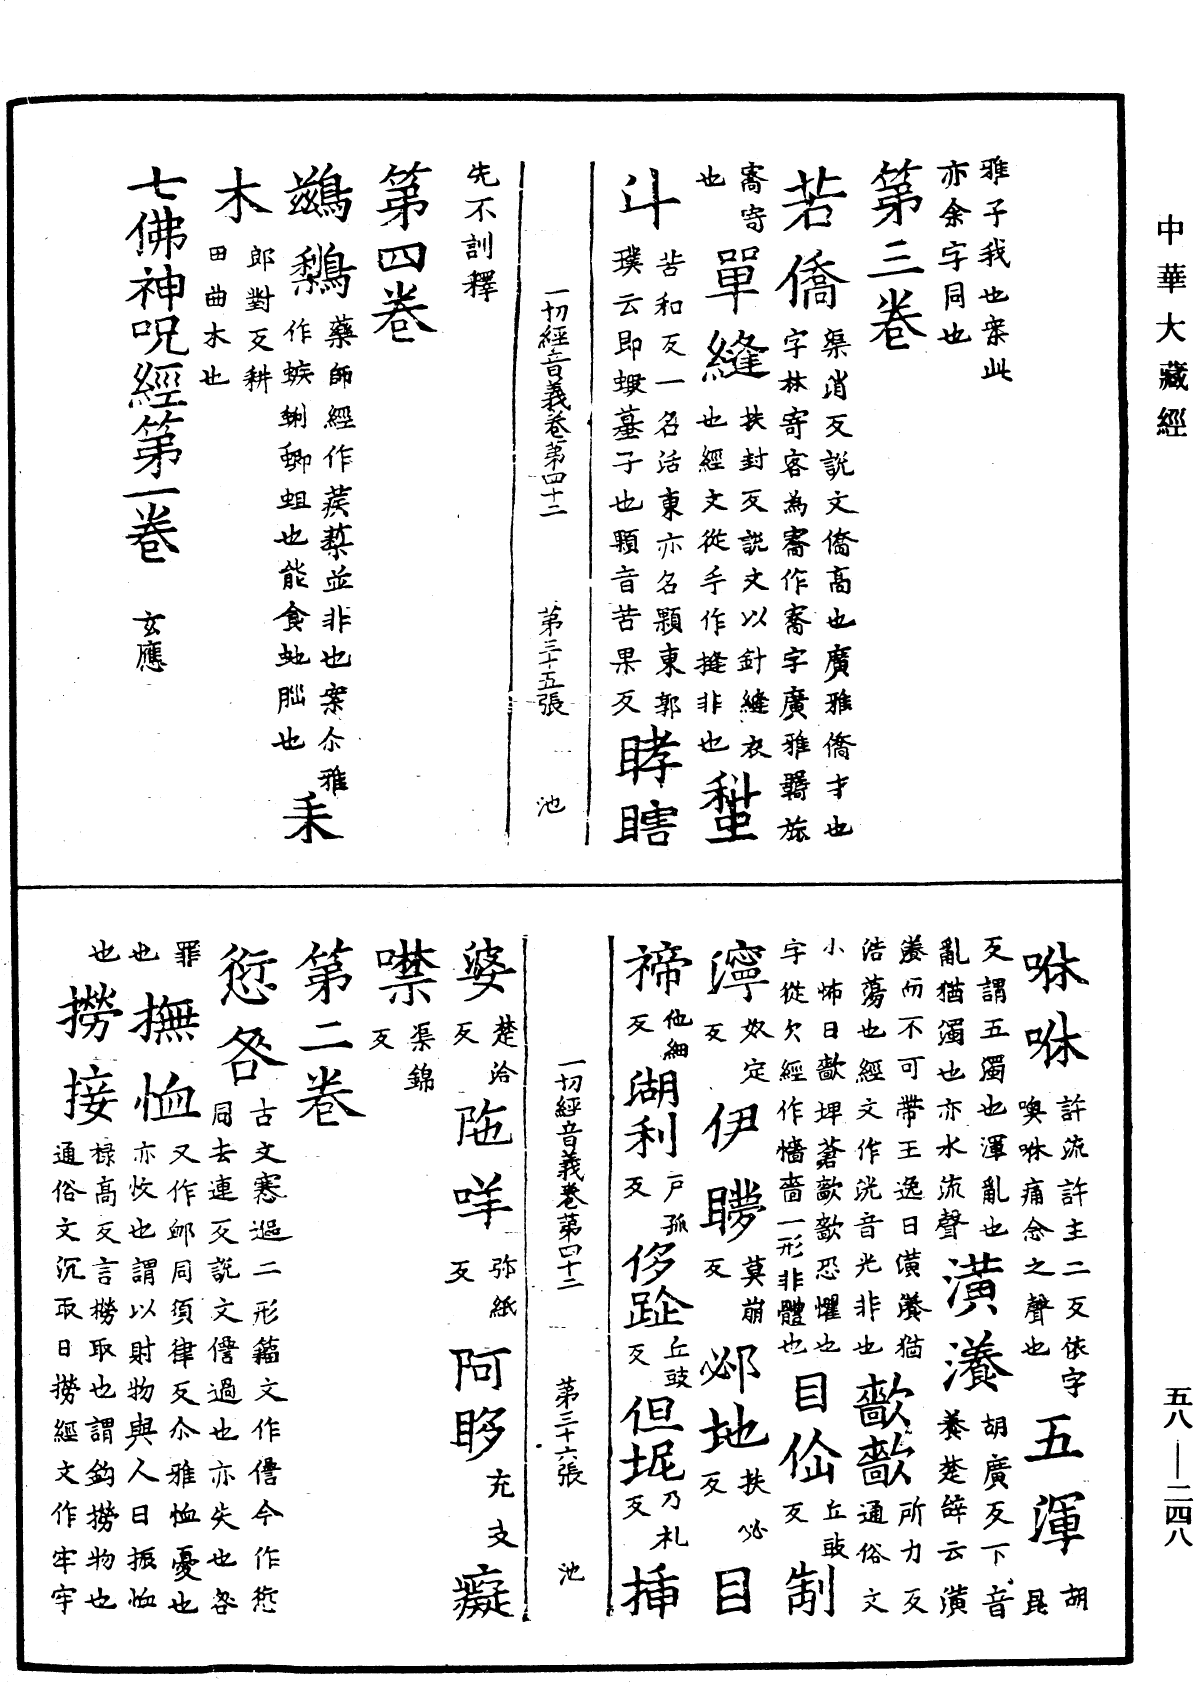 中華大藏經
雅子我也案此
亦余字同也
第三卷
若僑渠消反說文僑高也廣雅僑才也
字林寄客為寄作寄字廣雅羇旅
寄寄
也
單縫扶封反說文以針縫衣
也經文從手作摓非也
斗苦和反一名活東亦名顆東郭
璞云即蝦蟇子也顆音苦果反
睝瞎
一切經音義卷第四十二 第三十五張 池
先不訓釋
第四卷
鷀鵹藥師經作蒺蔾並非也案尒雅
作蛓蜊蝍蛆也能食虵腦也
耒
木郎對反耕
田曲木也
七佛神呪經第一卷 玄應
咻咻許流許主二反依字
噢咻痛念之聲也
五渾胡昆
反謂五濁也渾亂也
亂猶濁也亦水流聲
潢瀁胡廣反下音
養楚辝云潢
瀁而不可帶王逸曰潢瀁猶
浩蕩也經文作洸音光非也
歖歖所力反
通俗文
小怖曰歖埤蒼歖歖恐懼也
字從欠經作懎啬一形非體也
目佡丘豉
反
制
濘奴定
反
伊䁅莫崩
反
邲地扶必
反
目
褅他細
反
湖利戶孤
反
侈䟗丘豉
反
但坭乃札
反
揷
一切經音義卷第四十二 第三十六張 池
婆楚洽
反
陁哶弥紙
反
阿眵充支
反
癡
噤渠錦
反
第二卷
愆咎古文寋𨒰二形籀文作諐今作愆
同去連反說文諐過也亦失也咎
罪
也
撫恤又作䘏同須律反尒雅恤憂也
亦忺也謂以財物與人曰振恤
也
撈接祿高反言撈取也謂鈎撈物也
通俗文沉取曰撈經文作牢牢
五八—二四八